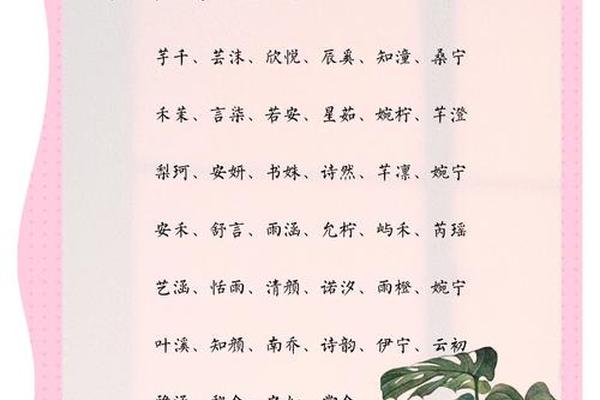 芋千、芸沫、欣悦、辰奚、知潼、桑宁
禾茉、言柒、若安、星茹、婉柠、芊澄
梨珂、安妍、书姝、诗然、芊凛、婉宁
安禾、舒言、雨涵、允柠、屿禾、芮瑶
艺涵、恬雨、清颜、诺汐、雨橙、婉宁
叶溪、知颜、南乔、诗韵、伊宁、云初